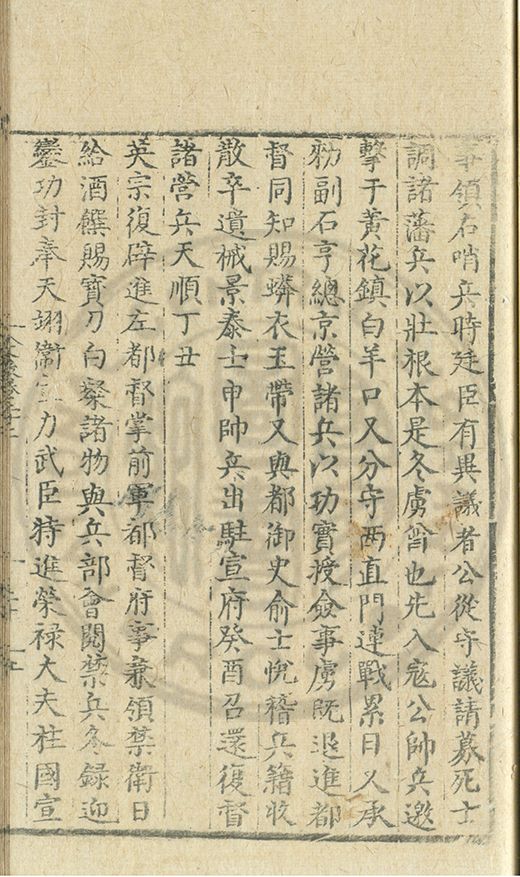 事領右哨兵時廷臣有異議者公從守議請募死士
調諸藩兵以壯根本是冬虜酋也先入寇公帥兵邀
擊于黃花鎮白羊口又分守西直門連戰累日又承
勑副石亨總京營諸兵以功實授僉事虜既退進都
督同知賜蟒衣玉帶又與都御史俞士悅稽兵籍收
散卒遺械景泰壬申帥兵出駐宣府癸酉召還復督
諸營兵天順丁丑
英宗復辟進左都督掌前軍都督府事兼領禁衛日
給酒饌賜寶刀白粲諸物與兵部會閱禁兵冬錄迎
鑾功封奉天翊衛宣力武臣特進榮祿大夫柱國宣